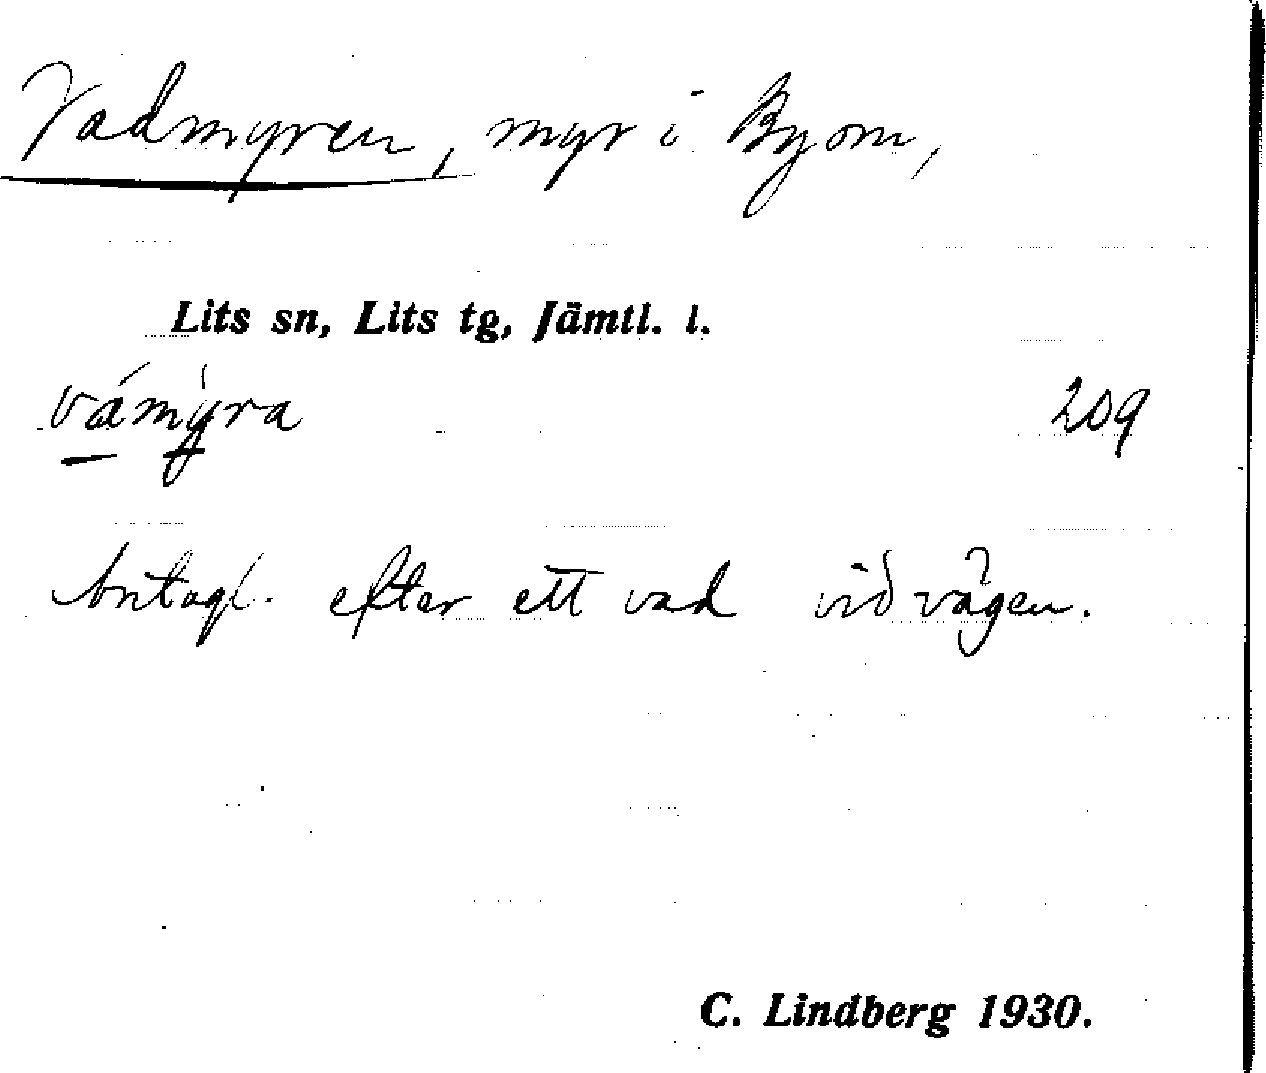 Vadmyren, myr i Byom,
Lits sn, Lits tg, Jämtl. l.
vámỳra 209
Antagl. efter ett vad vid vägen.
C. Lindberg 1930.